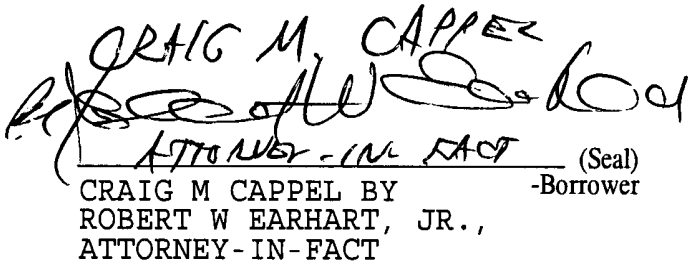 CRAIG M. CAPPEL
ATTORNEY-IN FACT (Seal)
CRAIG M CAPPEL BY -Borrower
ROBERT W EARHART, JR.,
ATTORNEY-IN-FACT